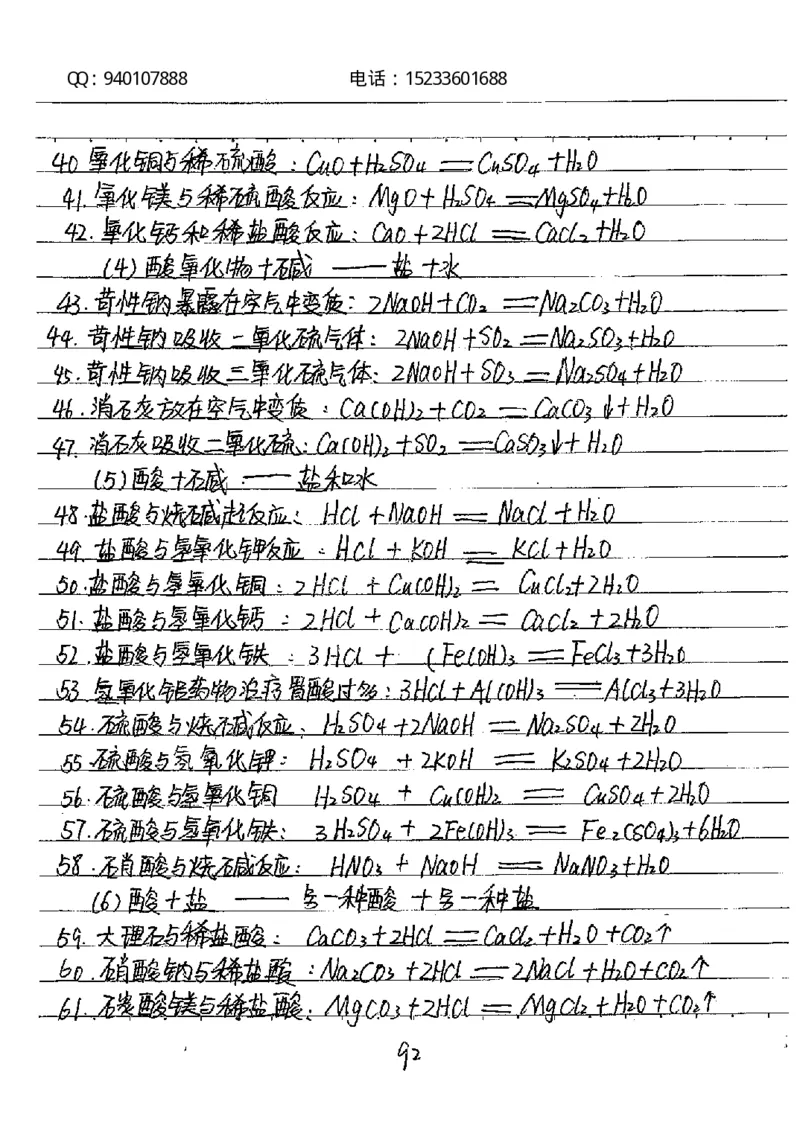 QQ：940107888 电话：15233601688
40.氧化铜与稀硫酸：CuO+H₂SO₄ == CuSO₄+H₂O
41.氧化镁与稀硫酸反应：MgO+H₂SO₄ == MgSO₄+H₂O
42.氧化钙和稀盐酸反应：CaO+2HCl == CaCl₂+H₂O
(4)酸氧化物+碱 —— 盐+水
43.苛性钠暴露在空气中变质：2NaOH+CO₂ == Na₂CO₃+H₂O
44.苛性钠吸收二氧化硫气体：2NaOH+SO₂ == Na₂SO₃+H₂O
45.苛性钠吸收三氧化硫气体：2NaOH+SO₃ == Na₂SO₄+H₂O
46.消石灰放在空气中变质：Ca(OH)₂+CO₂ == CaCO₃↓+H₂O
47.消石灰吸收二氧化硫：Ca(OH)₂+SO₂ == CaSO₃↓+H₂O
(5)酸+碱 —— 盐和水
48.盐酸与烧碱起反应：HCl+NaOH == NaCl+H₂O
49.盐酸与氢氧化钾反应：HCl+KOH == KCl+H₂O
50.盐酸与氢氧化铜：2HCl+Cu(OH)₂ == CuCl₂+2H₂O
51.盐酸与氢氧化钙：2HCl+Ca(OH)₂ == CaCl₂+2H₂O
52.盐酸与氢氧化铁：3HCl+(Fe(OH)₃ == FeCl₃+3H₂O
53.氢氧化铝药物治疗胃酸过多：3HCl+Al(OH)₃ == AlCl₃+3H₂O
54.硫酸与烧碱反应：H₂SO₄+2NaOH == Na₂SO₄+2H₂O
55.硫酸与氢氧化钾：H₂SO₄+2KOH == K₂SO₄+2H₂O
56.硫酸与氢氧化铜 H₂SO₄+Cu(OH)₂ == CuSO₄+2H₂O
57.硫酸与氢氧化铁：3H₂SO₄+2Fe(OH)₃ == Fe₂(SO₄)₃+6H₂O
58.硝酸与烧碱反应：HNO₃+NaOH == NaNO₃+H₂O
(6)酸+盐 —— 另一种酸+另一种盐
59.大理石与稀盐酸：CaCO₃+2HCl == CaCl₂+H₂O+CO₂↑
60.硝酸钠与稀盐酸：Na₂CO₃+2HCl == 2NaCl+H₂O+CO₂↑
61.碳酸镁与稀盐酸：MgCO₃+2HCl == MgCl₂+H₂O+CO₂↑
92